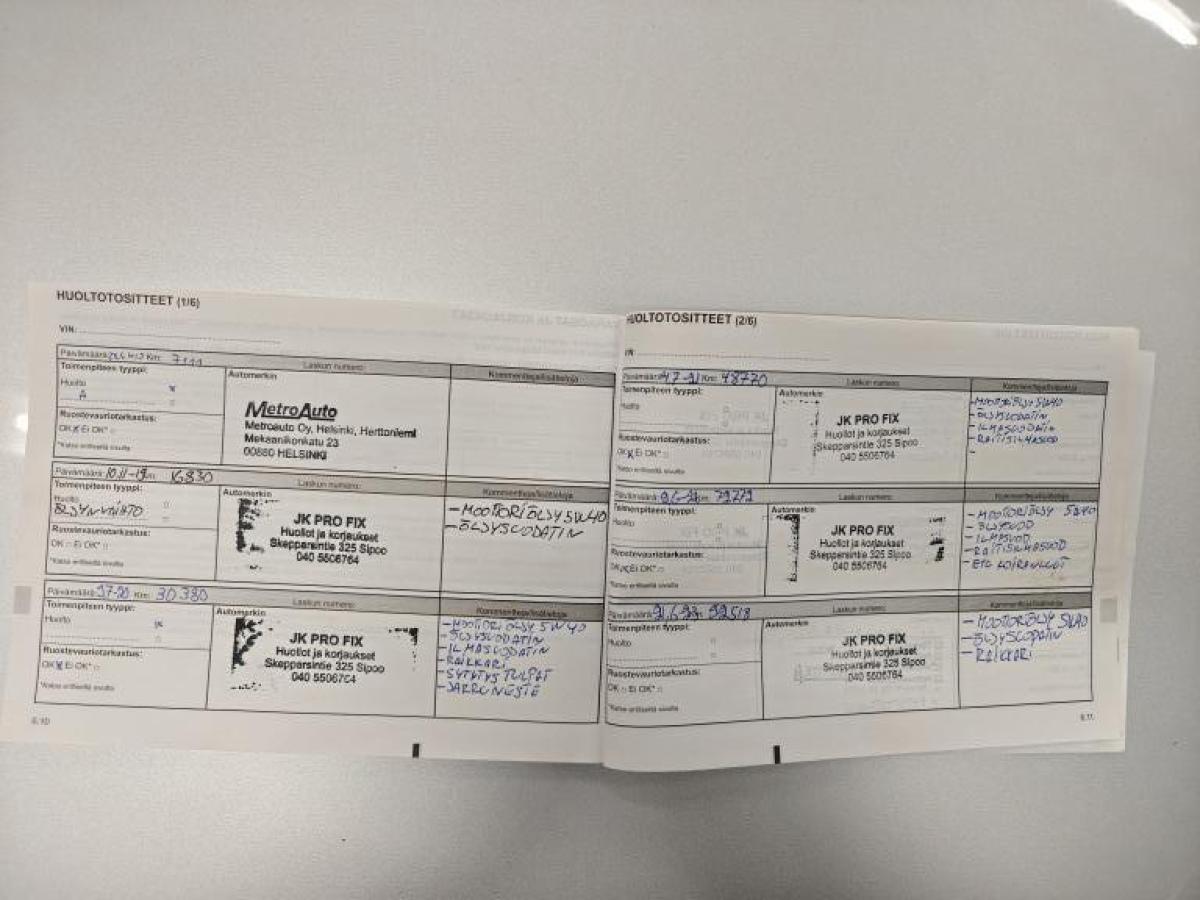 HUOLTOTOSITTEET (1/6)
VIN:
Päivämäärä: Km: 7111 Laskun numero: Kommentteja/lisätietoja
Toimenpiteen tyyppi: Automerkin
Huolto x
A
MetroAuto
Metroauto Oy, Helsinki, Herttoniemi
Mekaanikonkatu 23
00880 HELSINKI
Ruostevauriotarkastus:
OK x Ei OK*
*Katso erilliseltä sivulta
Päivämäärä: 10.11-19 Km: 16830 Laskun numero: Kommentteja/lisätietoja
Toimenpiteen tyyppi: Automerkin
Huolto
ÖLJYNVAIHTO
JK PRO FIX
Huollot ja korjaukset
Skepparsintie 325 Sipoo
040 5506764
- MOOTTORIÖLJY 5W40
- ÖLJYSUODATIN
Ruostevauriotarkastus:
OK Ei OK*
*Katso erilliseltä sivulta
Päivämäärä: Km: 30380 Laskun numero: Kommentteja/lisätietoja
Toimenpiteen tyyppi: Automerkin
Huolto x
JK PRO FIX
Huollot ja korjaukset
Skepparsintie 325 Sipoo
040 5506764
- MOOTORIÖLJY 5W40
- ÖLJYSUODATIN
- ILMASUODATIN
- RAIKKARI
- SYTYTYSTULPAT
- JARRUNESTE
Ruostevauriotarkastus:
OK x Ei OK*
*Katso erilliseltä sivulta
6.10
HUOLTOTOSITTEET (2/6)
Päivämäärä: 4.7-21 Km: 48770 Laskun numero: Kommentteja/lisätietoja
Toimenpiteen tyyppi: Automerkin
Huolto
JK PRO FIX
Huollot ja korjaukset
Skepparsintie 325 Sipoo
040 5506764
- MOOTORIÖLJY 5W40
- ÖLJYSUODATIN
- ILMASUODATIN
- RAITISILMASUOD
-
Ruostevauriotarkastus:
OK x Ei OK*
*Katso erilliseltä sivulta
Päivämäärä: Km: Laskun numero: Kommentteja/lisätietoja
Toimenpiteen tyyppi: Automerkin
Huolto
JK PRO FIX
Huollot ja korjaukset
Skepparsintie 325 Sipoo
040 5506764
- MOOTORIÖLJY 5W40
- ÖLJYSUOD
- ILMASUOD
- RAITISILMASUOD
- ETU KOIRANLUUT
Ruostevauriotarkastus:
OK x Ei OK*
*Katso erilliseltä sivulta
Päivämäärä: 21.6-23 92518 Laskun numero: Kommentteja/lisätietoja
Toimenpiteen tyyppi: Automerkin
Huolto
JK PRO FIX
Huollot ja korjaukset
Skepparsintie 325 Sipoo
040 5506764
- MOOTORIÖLJY 5W40
- ÖLJYSUODATIN
- RAIKKARI
Ruostevauriotarkastus:
OK Ei OK*
*Katso erilliseltä sivulta
6.11